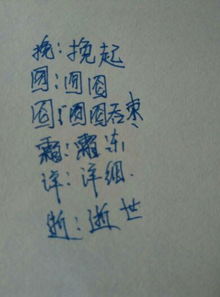 挽：挽起
囫：囫囵
囵：囫囵吞枣
霜：霜冻
详：详细.
逝：逝世